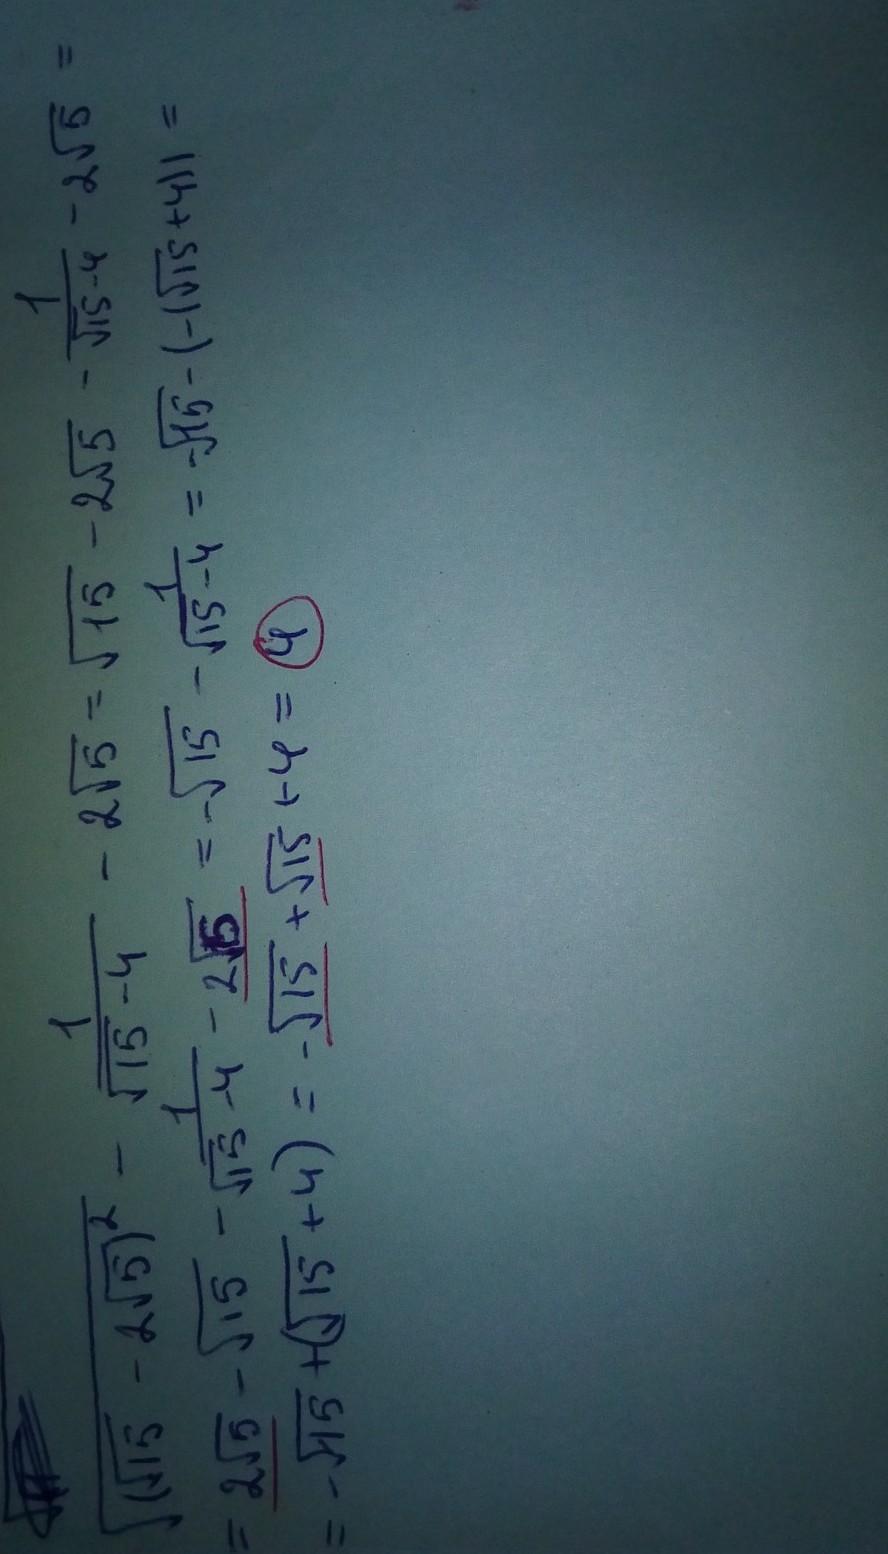 √(√15 - 2√5)² - 1/(√15 - 4) - 2√5 = √15 - 2√5 - 1/(√15 - 4) - 2√5 =
= 2√5 - √15 - 1/(√15 - 4) - 2√5 = -√15 - 1/(√15 - 4) = -√15 - (-(√15 + 4)) =
= -√15 + (√15 + 4) = -√15 + √15 + 4 = 4